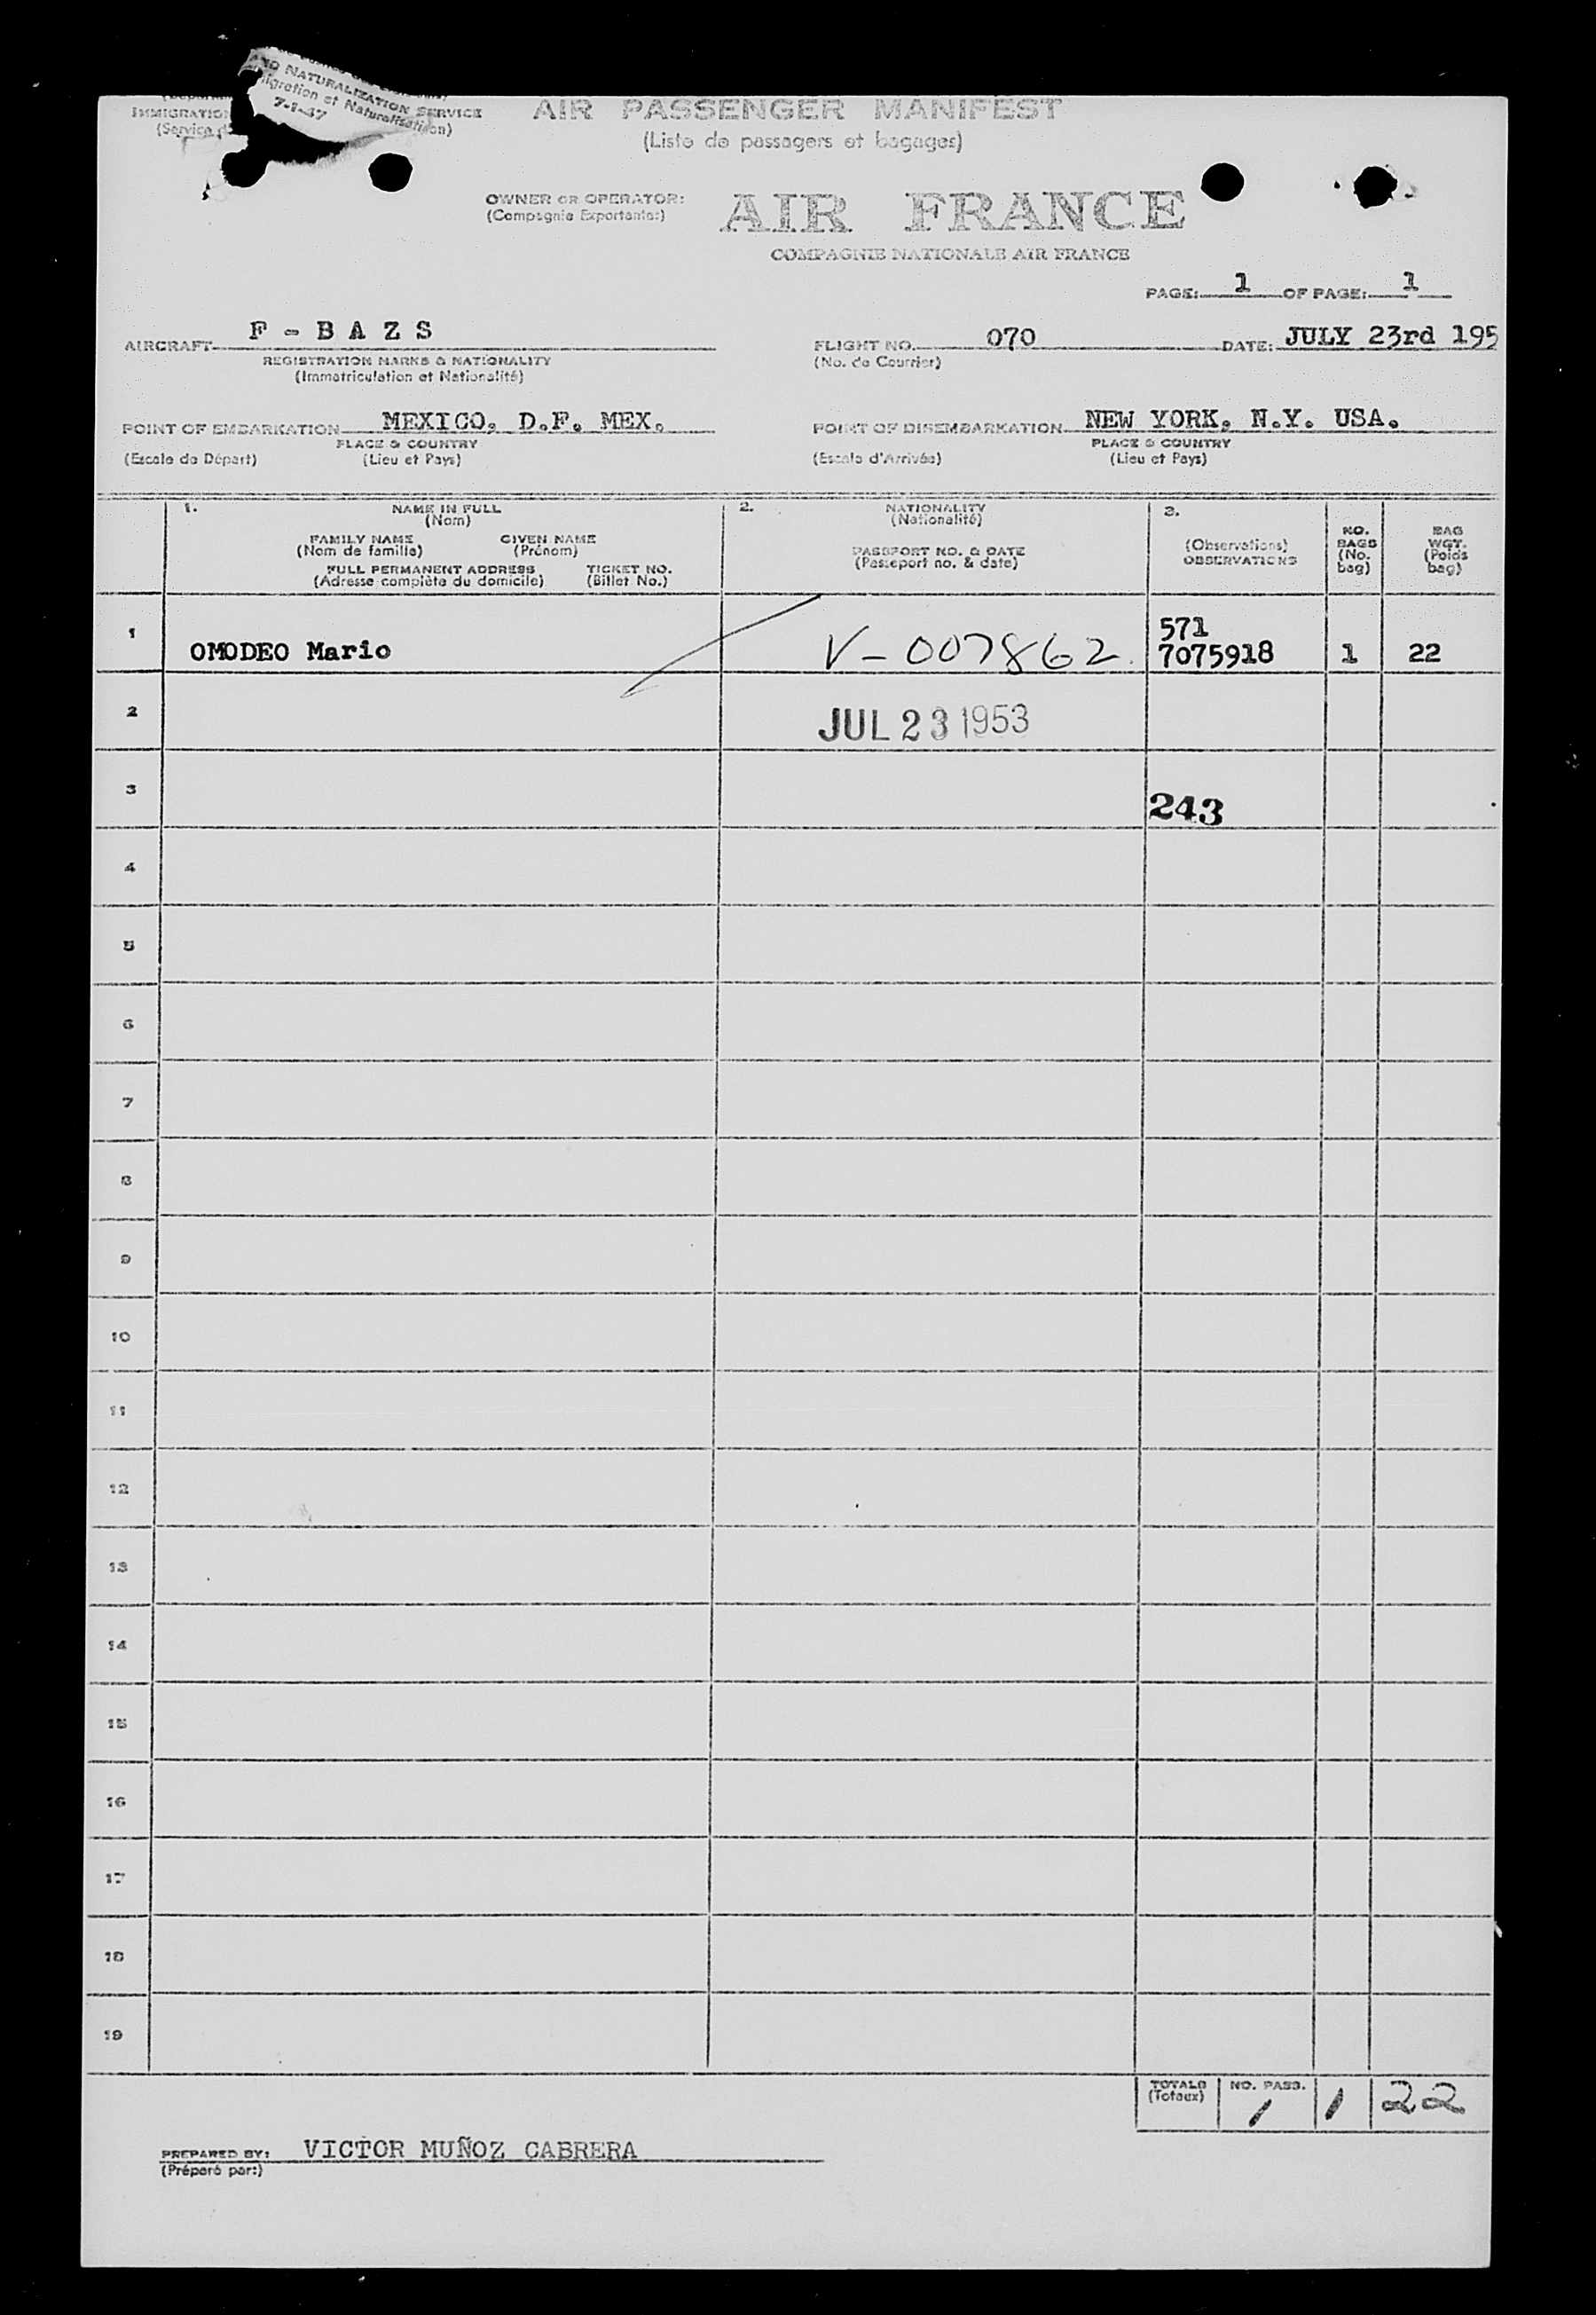 AND NATURALIZATION SERVICE
7-1-47
IMMIGRATIO
(Service d
AIR PASSENGER MANIFEST
(Liste de passagers et bagages)
OWNER OR OPERATOR:
(Compagnie Exportante:)
AIR FRANCE
COMPAGNIE NATIONALE AIR FRANCE
PAGE: 1 OF PAGE: 1
AIRCRAFT F - B A Z S
REGISTRATION MARKS & NATIONALITY
(Immatriculation et Nationalité)
FLIGHT NO. 070 DATE: JULY 23rd 195
(No. de Courrier)
POINT OF EMBARKATION MEXICO, D.F. MEX.
PLACE & COUNTRY
(Escale de Départ) (Lieu et Pays)
POINT OF DISEMBARKATION NEW YORK, N.Y. USA.
PLACE & COUNTRY
(Escale d'Arrivée) (Lieu et Pays)
1. NAME IN FULL
(Nom)
FAMILY NAME GIVEN NAME
(Nom de famille) (Prénom)
FULL PERMANENT ADDRESS TICKET NO.
(Adresse complète du domicile) (Billet No.)
2. NATIONALITY
(Nationalité)
PASSPORT NO. & DATE
(Passeport no. & date)
3.
(Observations)
OBSERVATIONS
NO.
BAGS
(No.
bag)
BAG
WGT.
(Poids
bag)
571
1 OMODEO Mario V-007862 7075918 1 22
2 JUL 23 1953
3 243
4
5
6
7
8
9
10
11
12
13
14
15
16
17
18
19
TOTALS NO. PASS.
(Totaux) 1 1 22
PREPARED BY: VICTOR MUÑOZ CABRERA
(Préparé par:)